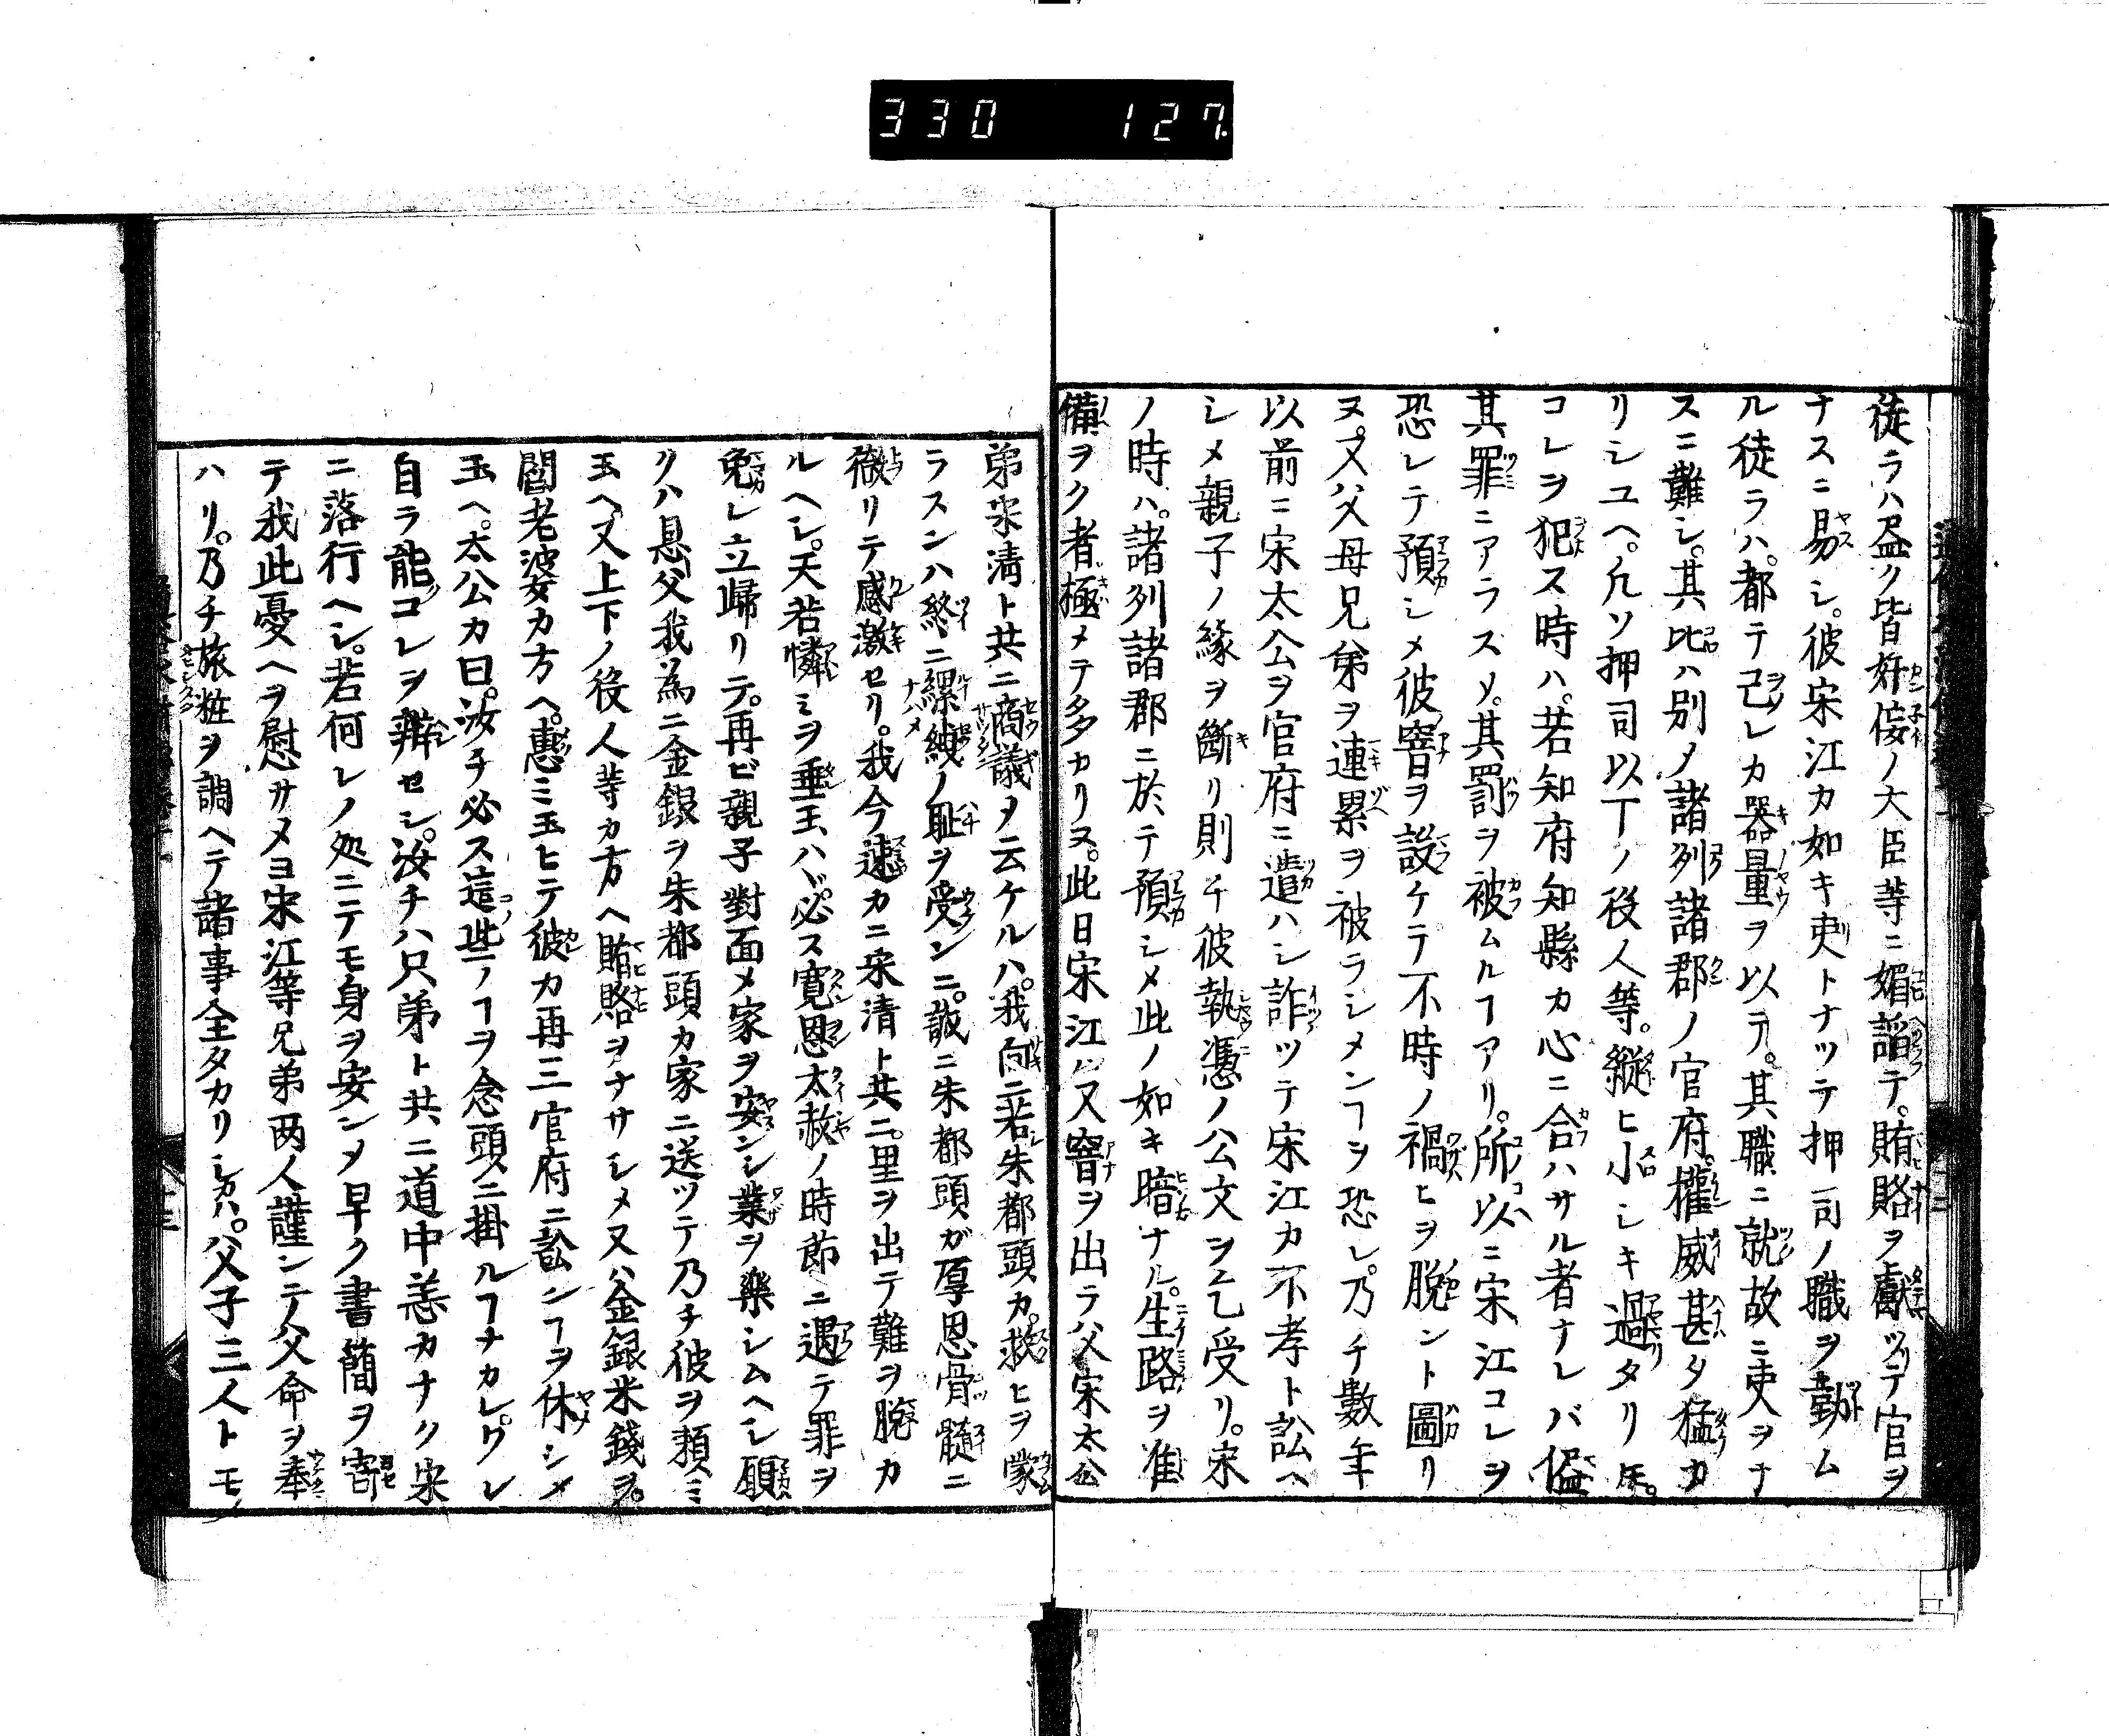 330 127
徒ラハ盡ク皆奸侫ノ大臣等ニ媚諂テ。賄賂ヲ獻ツリテ官ヲ
ナスニ易シ。彼宋江カ如キ吏トナツテ押司ノ職ヲ勤ム
ル徒ラハ。都テ己レカ器量ヲ以テ。其職ニ就故ニ吏ヲナ
スニ難シ。其比ハ別ノ諸列諸郡ノ官府。權威甚タ猛カ
リシユヘ。凡ソ押司以丁ノ役人等。縱ヒ小シキ過タリ𪜈。
コレヲ犯ス時ハ。若知府知縣カ心ニ合ハサル者ナレバ
其罪ニアラスソ。其罰ヲ被ムルヿアリ。所以ニ宋江コレヲ
恐レテ預シメ彼窨ヲ設ケテ不時ノ禍ヒヲ脱ント圖リ
ヌ。又父母兄弟ヲ連累ヲ被ラシメンヿヲ恐レ。乃チ數年
以前ニ宋太公ヲ官府ニ遣ハシ詐ツテ宋江カ不孝ト訟ヘ
シメ親子ノ緣ヲ斷リ則チ彼執憑ノ公文ヲ乞受リ。宋
ノ時ハ。諸列諸郡ニ於テ預シメ此ノ如キ暗ナル。生路ヲ准
備ヲク者極メテ多カリヌ。此日宋江ハ又窨ヲ出ラ父宋太公
弟宋淸ト共ニ商議ヲ云ケルハ。我向ニ若朱都頭カ。救ヒヲ蒙
ラスンハ終ニ縲絏ノ耻ヲ受ンニ。誠ニ朱都頭ガ厚恩骨髓ニ
徹リテ感激セリ。我今速カニ宋清ト共ニ。里ヲ出テ難ヲ脱カ
ルヘシ。天若憐ミヲ垂玉ハヾ。必ス寛恩太赦ノ時節ニ遇テ罪ヲ
免レ立歸リテ。再ビ親子對面メ家ヲ安ンシ業ヲ樂シムヘシ願
クハ父我為ニ金銀ヲ朱都頭カ家ニ送ツテ乃チ彼ヲ頼ミ
玉ヘ。又上下ノ役人等カ方ヘ賄賂ヲナサシメ又ハ金銀米錢ヲ。
閻老婆カ方ヘ。惠ミ玉ヒテ彼カ再三官府ニ訟ンヿヲ休シメ
玉ヘ。太公カ曰。汝チ必ス這些ノヿヲ念頭ニ掛ルヿナカレワレ
自ラ能コレヲ辨セン。汝チハ只弟ト共ニ道中恙カナク宋
ニ落行ヘシ。若何レノ処ニテモ身ヲ安ンメ早ク書簡ヲ寄
テ我此憂ヘヲ慰サメヨ宋江等兄弟两人謹ンテ父命ヲ奉
ハリ。乃チ旅粧ヲ調ヘテ諸事全タカリシカハ。父子三人トモ